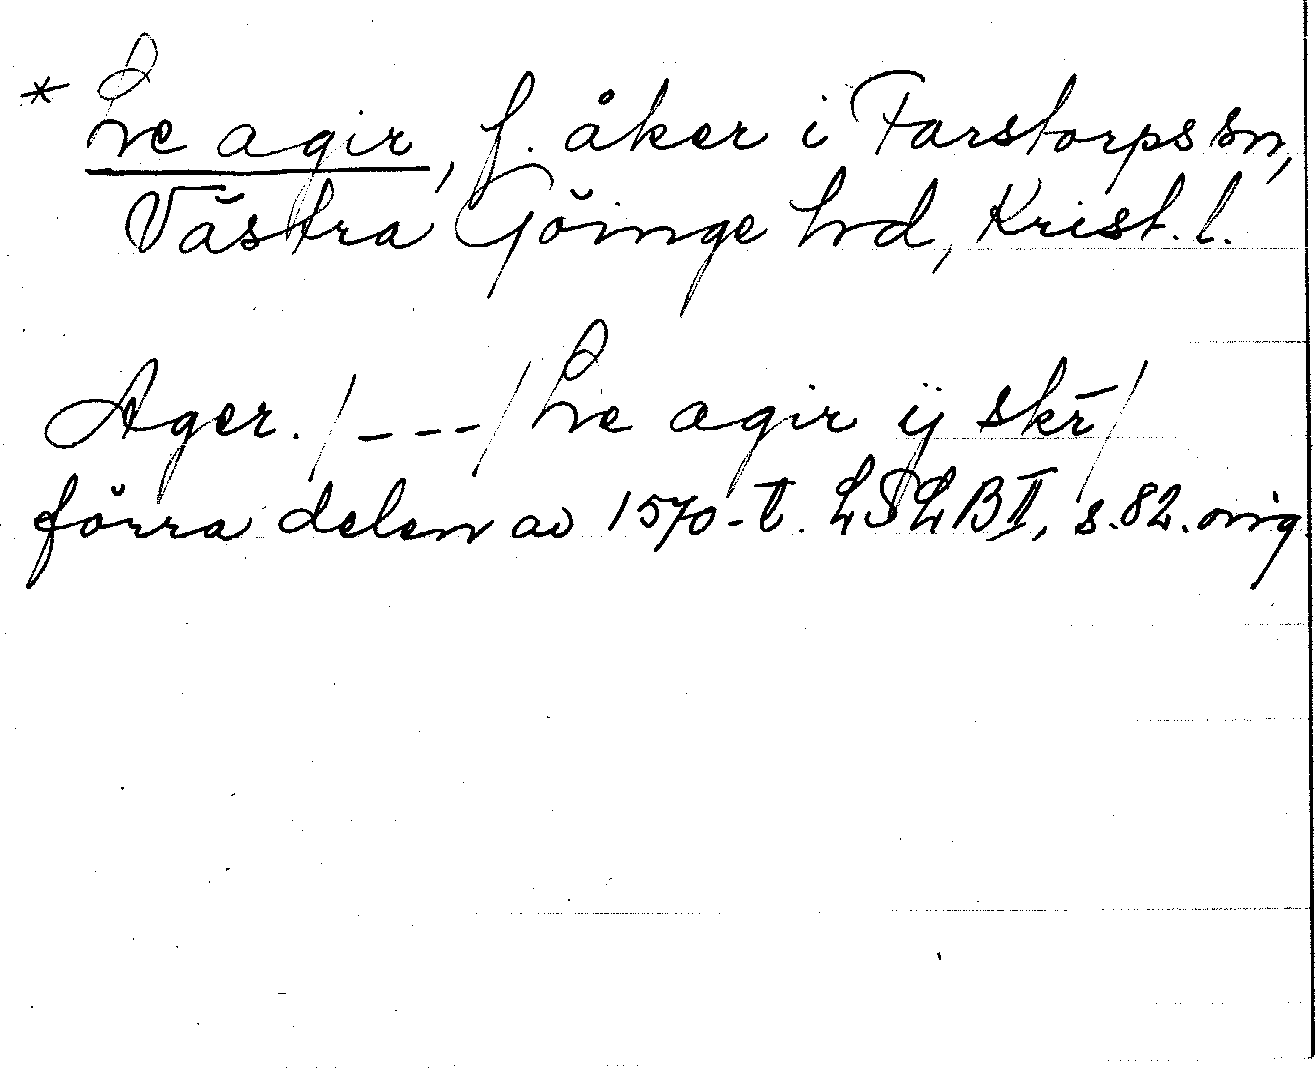 * agir, f. åker i Farstorps sn,
Västra Göinge hrd, Krist. l.
Ager. /---/ agir ij skr̄/
förra delen av 1570-t. LSLB II, s. 82. orig.